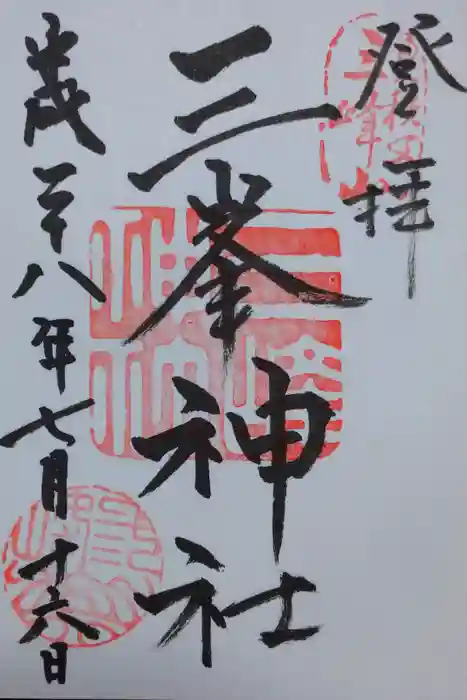 登拝
三峯神社
平成二十八年七月十六日